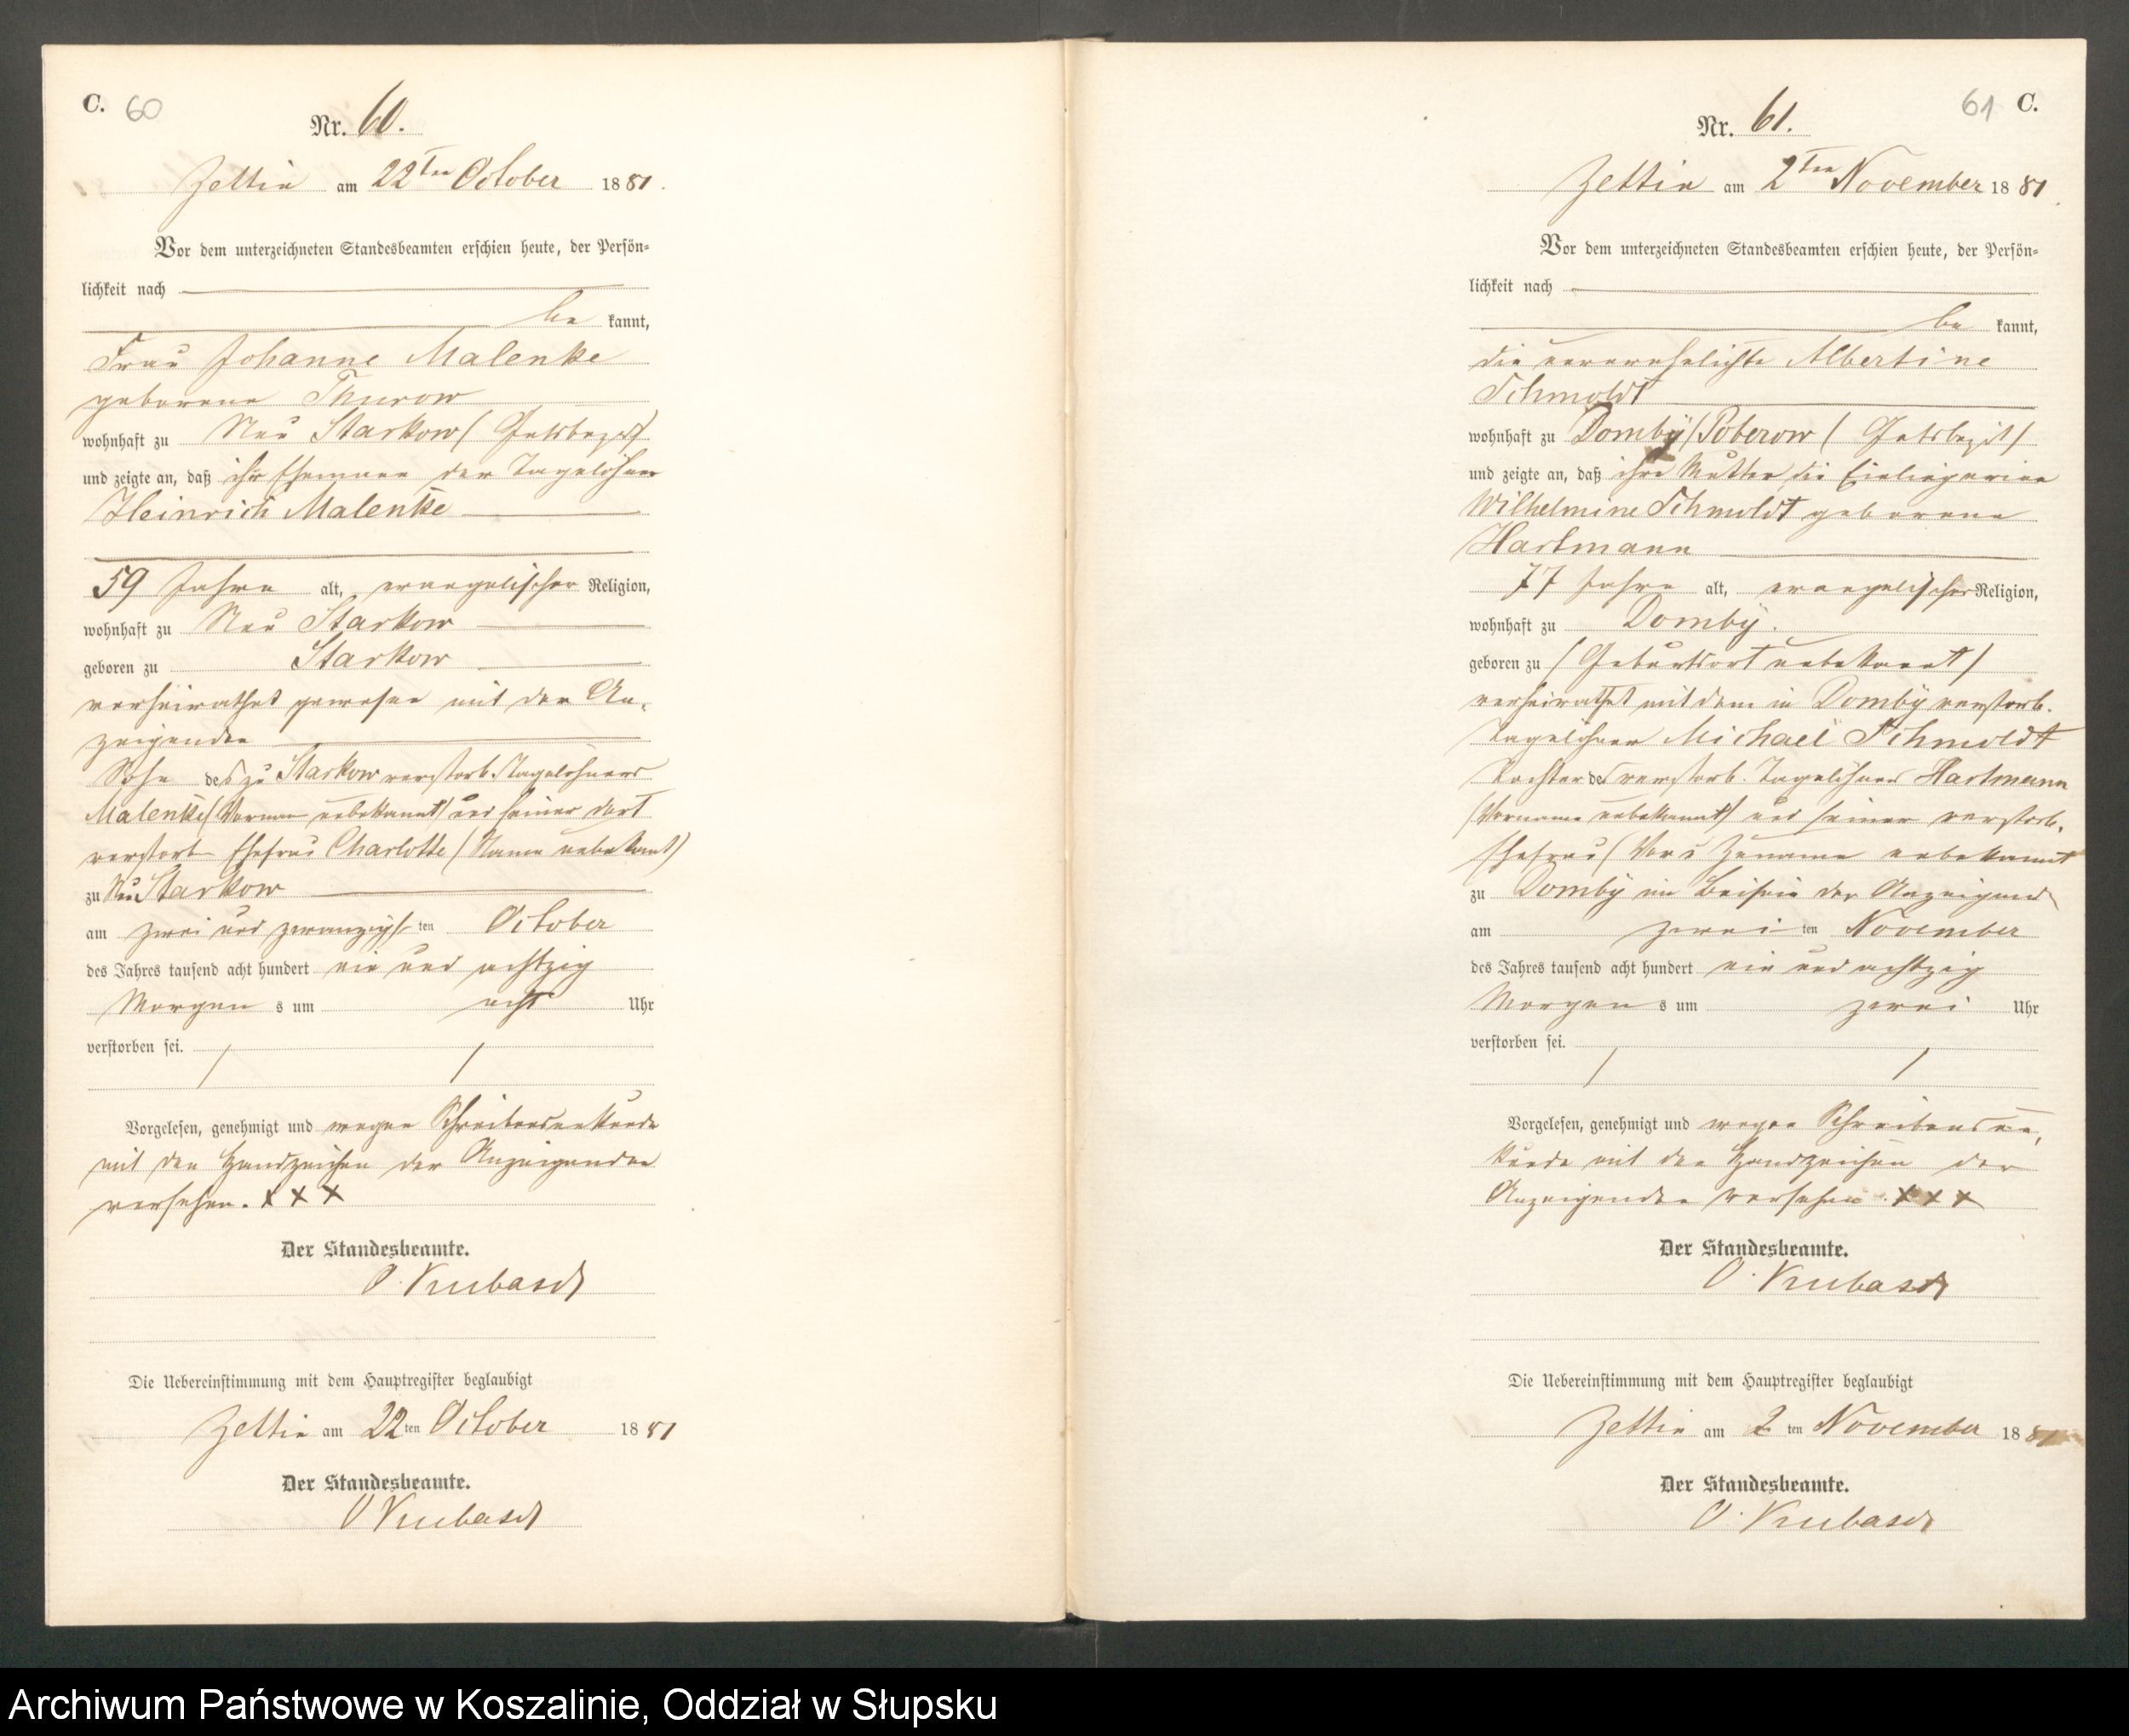 C. 60
Nr. 60.
Zettin am 22ten October 1881.
Vor dem unterzeichneten Standesbeamten erschien heute, der Persön-
lichkeit nach
be kannt,
Frau Johanne Malenke
geborene Thurow
wohnhaft zu Neu Starkow (Gutsbezirk)
und zeigte an, daß ihr Ehemann der Tagelöhner
Heinrich Malenke
59 Jahre alt, evangelischer Religion,
wohnhaft zu Neu Starkow
geboren zu Starkow
verheirathet gewesen mit der An-
zeigenden
Sohn des zu Starkow verstorb. Tagelöhners
Malenke (Vorname unbekannt) und seiner dort
verstorb Ehefrau Charlotte (Name unbekannt)
zu Neu Starkow
am zwei und zwanzigsten October
des Jahres tausend acht hundert ein und achtzig
Morgen s um acht Uhr
verstorben sei.
Vorgelesen, genehmigt und wegen Schreibensunkunde
mit den Handzeichen der Anzeigenden
versehen. x x x
Der Standesbeamte.
O. Kubasch
Die Uebereinstimmung mit dem Hauptregister beglaubigt
Zettin am 22ten October 1881
Der Standesbeamte.
O Kubasch
61 C.
Nr. 61.
Zettin am 2ten November 1881.
Vor dem unterzeichneten Standesbeamten erschien heute, der Persön-
lichkeit nach
be kannt,
die verehelichte Albertine
Schmoldt
wohnhaft zu Domby/Poberow (Gutsbezirk)
und zeigte an, daß ihre Mutter die
Wilhelmine Schmoldt geborene
Hartmann
77 Jahre alt, evangelischer Religion,
wohnhaft zu Domby.
geboren zu (Geburtsort unbekannt)
verheirathet mit dem in Domby verstorb.
Tagelöhner Michael Schmoldt
Tochter des verstorb. Tagelöhners Hartmann
(Vorname unbekannt) und seiner verstorb.
Ehefrau (Vor u Zuname unbekannt
zu Domby im Beisein der Anzeigend
am zwei ten November
des Jahres tausend acht hundert ein und achtzig
Morgen s um zwei Uhr
verstorben sei.
Vorgelesen, genehmigt und wegen Schreibensun-
kunde mit den Handzeichen der
Anzeigenden versehen. x x x
Der Standesbeamte.
O. Kubasch
Die Uebereinstimmung mit dem Hauptregister beglaubigt
Zettin am 2 ten November 1881
Der Standesbeamte.
O. Kubasch
Archiwum Państwowe w Koszalinie, Oddział w Słupsku